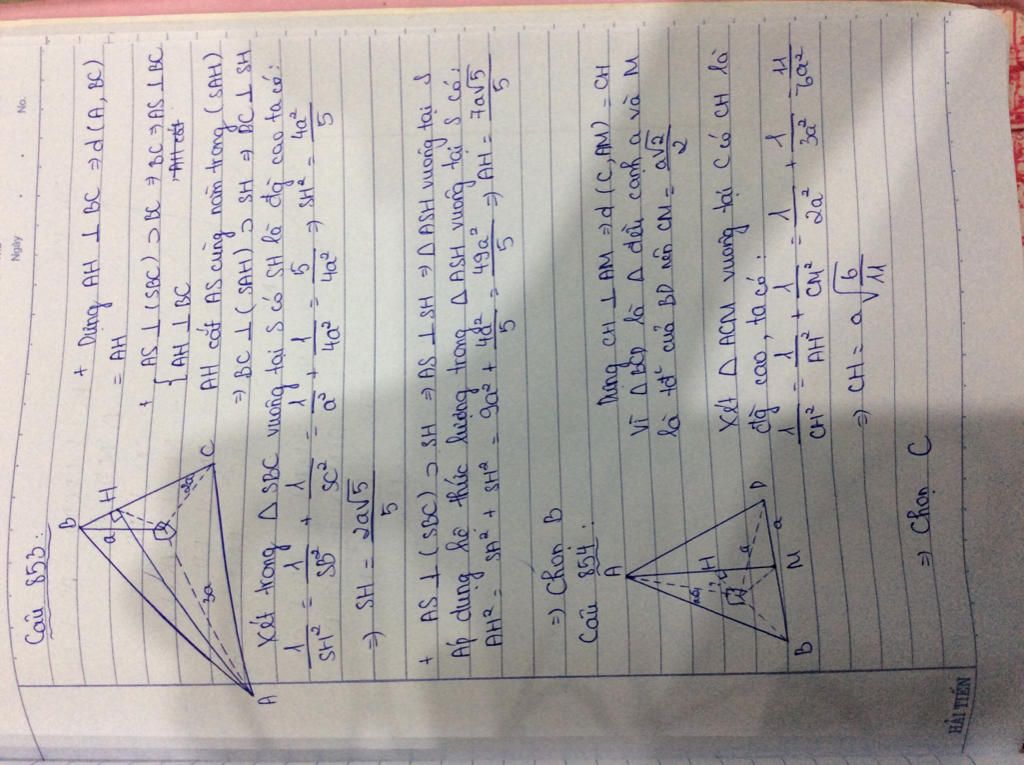 Ngày
No.
Câu 853:
+ Dựng AH ⊥ BC ⇒ d(A, BC)
= AH
+ { AS ⊥ (SBC) ⊃ BC ⇒ AS ⊥ BC
AH ⊥ BC
, AH cắt
AH cắt AS cùng nằm trong (SAH)
⇒ BC ⊥ (SAH) ⊃ SH ⇒ BC ⊥ SH
Xét trong Δ SBC vuông tại S có SH là đg cao ta có:
1/SH² = 1/SB² + 1/SC² = 1/a² + 1/4a² = 5/4a² ⇒ SH² = 4a²/5
⇒ SH = 2a√5/5
+ AS ⊥ (SBC) ⊃ SH ⇒ AS ⊥ SH ⇒ Δ ASH vuông tại S
Áp dụng hệ thức lượng trong Δ ASH vuông tại S có:
AH² = SA² + SH² = 9a² + 4a²/5 = 49a²/5 ⇒ AH = 7a√5/5
B
a
H
3a
C
A
⇒ Chọn B
Câu 854:
Dựng CH ⊥ AM ⇒ d(C, AM) = CH
Vì Δ BCD là Δ đều cạnh a và M
là tđ của BD nên CM = a√2/2
Xét Δ ACM vuông tại C có CH là
đg cao, ta có:
1/CH² = 1/AH² + 1/CM² = 1/2a² + 1/3a² = 11/6a²
⇒ CH = a√(6/11)
A
H
a
D
a
M
B
⇒ Chọn C
HẢI TIẾN